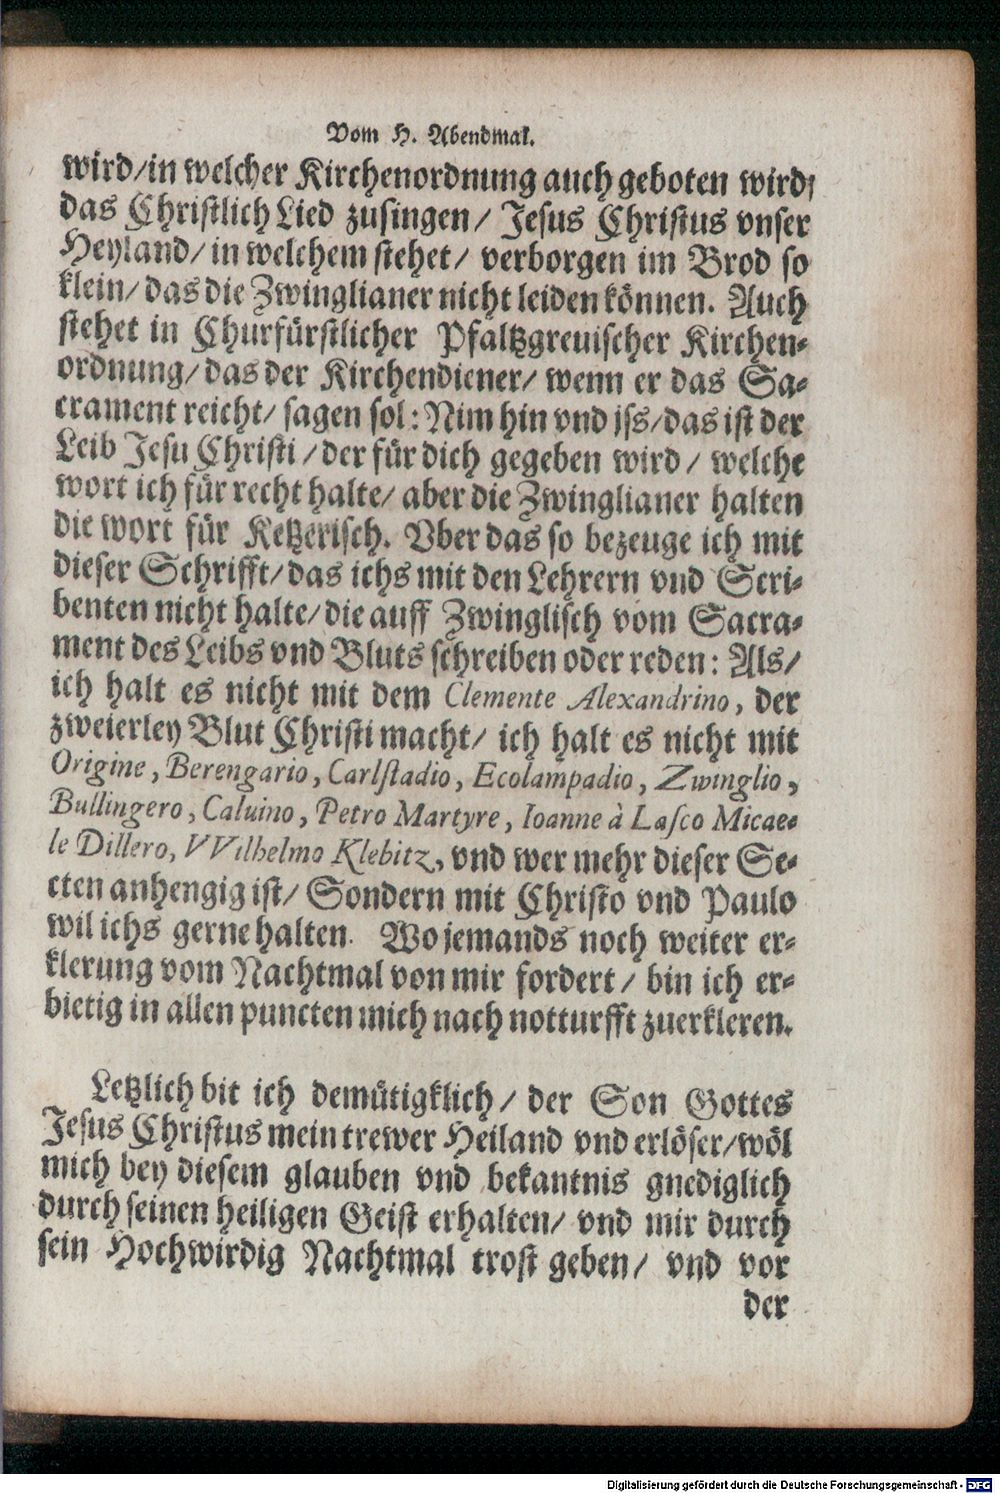 Vom H. Abendmal.
wird/in welcher Kirchenordnung auch geboten wird/
das Christlich Lied zusingen/ Jesus Christus vnser
Heyland/ in welchem stehet/ verborgen im Brod so
klein/ das die Zwinglianer nicht leiden können. Auch
stehet in Churfürstlicher Pfaltzgreuischer Kirchen-
ordnung/ das der Kirchendiener/ wenn er das Sa-
crament reicht/ sagen sol: Nim hin vnd iss/das ist der
Leib Jesu Christi / der für dich gegeben wird / welche
wort ich für recht halte/ aber die Zwinglianer halten
die wort für Ketzerisch. Vber das so bezeuge ich mit
dieser Schrifft/das ichs mit den Lehrern vnd Scri-
benten nicht halte/die auff Zwinglisch vom Sacra-
ment des Leibs vnd Bluts schreiben oder reden: Als/
ich halt es nicht mit dem Clemente Alexandrino, der
zweierley Blut Christi macht/ ich halt es nicht mit
Origine, Berengario, Carlstadio, Ecolampadio, Zwinglio,
Bullingero, Caluino, Petro Martyre, Ioanne à Lasco Micae-
le Dillero, VVilhelmo Klebitz, vnd wer mehr dieser Se-
cten anhengig ist/ Sondern mit Christo vnd Paulo
wil ichs gerne halten. Wo jemands noch weiter er-
klerung vom Nachtmal von mir fordert / bin ich er-
bietig in allen puncten mich nach notturfft zuerkleren.
Letzlich bit ich demütigklich / der Son Gottes
Jesus Christus mein trewer Heiland vnd erlöser/wöl
mich bey diesem glauben vnd bekantnis gnediglich
durch seinen heiligen Geist erhalten/ vnd mir durch
sein Hochwirdig Nachtmal trost geben/ vnd vor
der
Digitalisierung gefördert durch die Deutsche Forschungsgemeinschaft - DFG